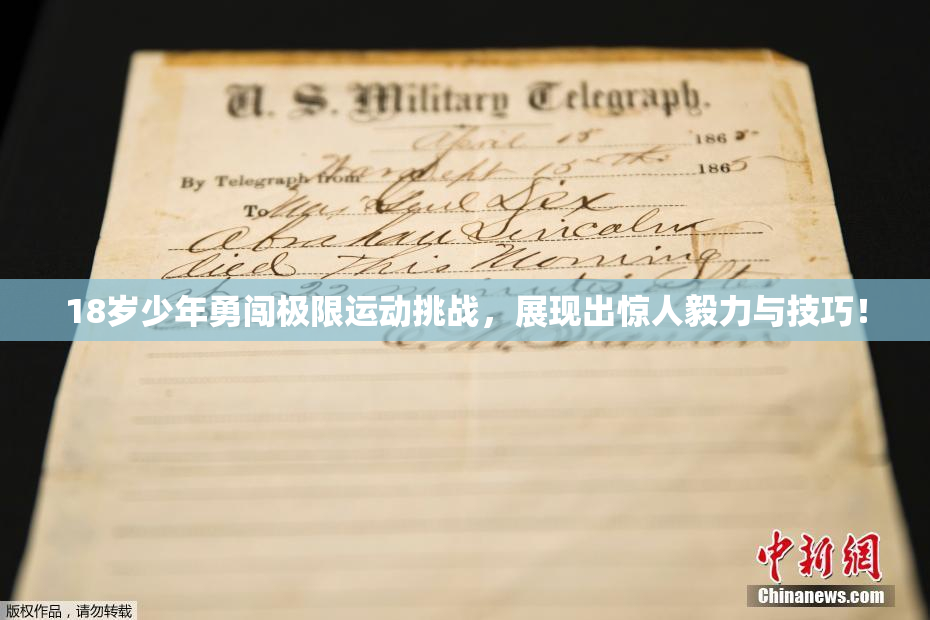 U. S. Military Telegraph.
April 15 1865
By Telegraph from War Dept 15th 1865
To Maj Genl Dix
Abraham Lincoln
died This Morning
22 minutes after
18岁少年勇闯极限运动挑战，展现出惊人毅力与技巧！
E. M. Stanton
中新网
Chinanews.com
版权作品，请勿转载